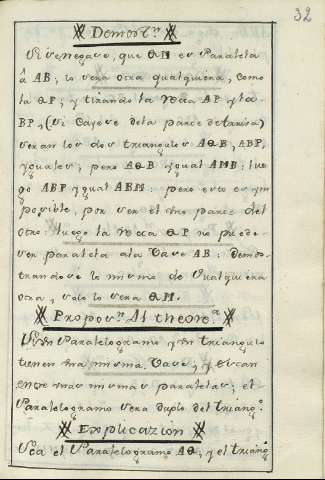 32
Demostⁿ.
Si se negare, que QM es Paralela
á AB; lo sera otra qualquiera, como
la QP; y tirando la recta AP y la
BP, (si cayere de la parte de traviesa)
seran los dos triangulos AQB, ABP,
yguales; pero AQB ygual AMB: lue
go ABP ygual ABM: pero esto es ym
posible, por ser el uno parte del
otro: luego la recta QP no puede
ser paralela ala Vase AB: Demos-
trandose lo mismo de qualquiera
otra, solo lo sera QM.
Proposⁿ. 41 theorᵃ.
Si un Paralelogramo y un triangulo
tienen una misma Vase, y estan
entre unas mismas paralelas; el
Paralelogramo sera duplo del triangº.
Explicazion
Sea el Paralelogramo AQ, y el triangº